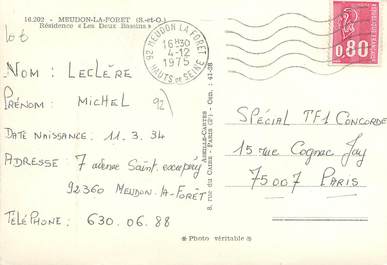 16.202 - MEUDON-LA-FORET (S.-et-O.)
Résidence « Les Deux Bassins »
Lot
NOM : LECLÈRE
PRÉNOM : MICHEL 92)
DATE NAISSANCE : 11.3.34
ADRESSE : 7 avenue Saint. exupéry
92360 MEUDON-la-FORÊT
TÉLÉPHONE : 630.06.88
92 MEUDON LA FORET
16H30
4-12
1975
HAUTS DE SEINE
0,80
ABEILLE-CARTES
8, rue du Caire - PARIS (2e) - CEN. : 41-28
SPÉCIAL TF1 CONCORDE
15 rue Cognac Jay
75007 PARIS
* Photo véritable *